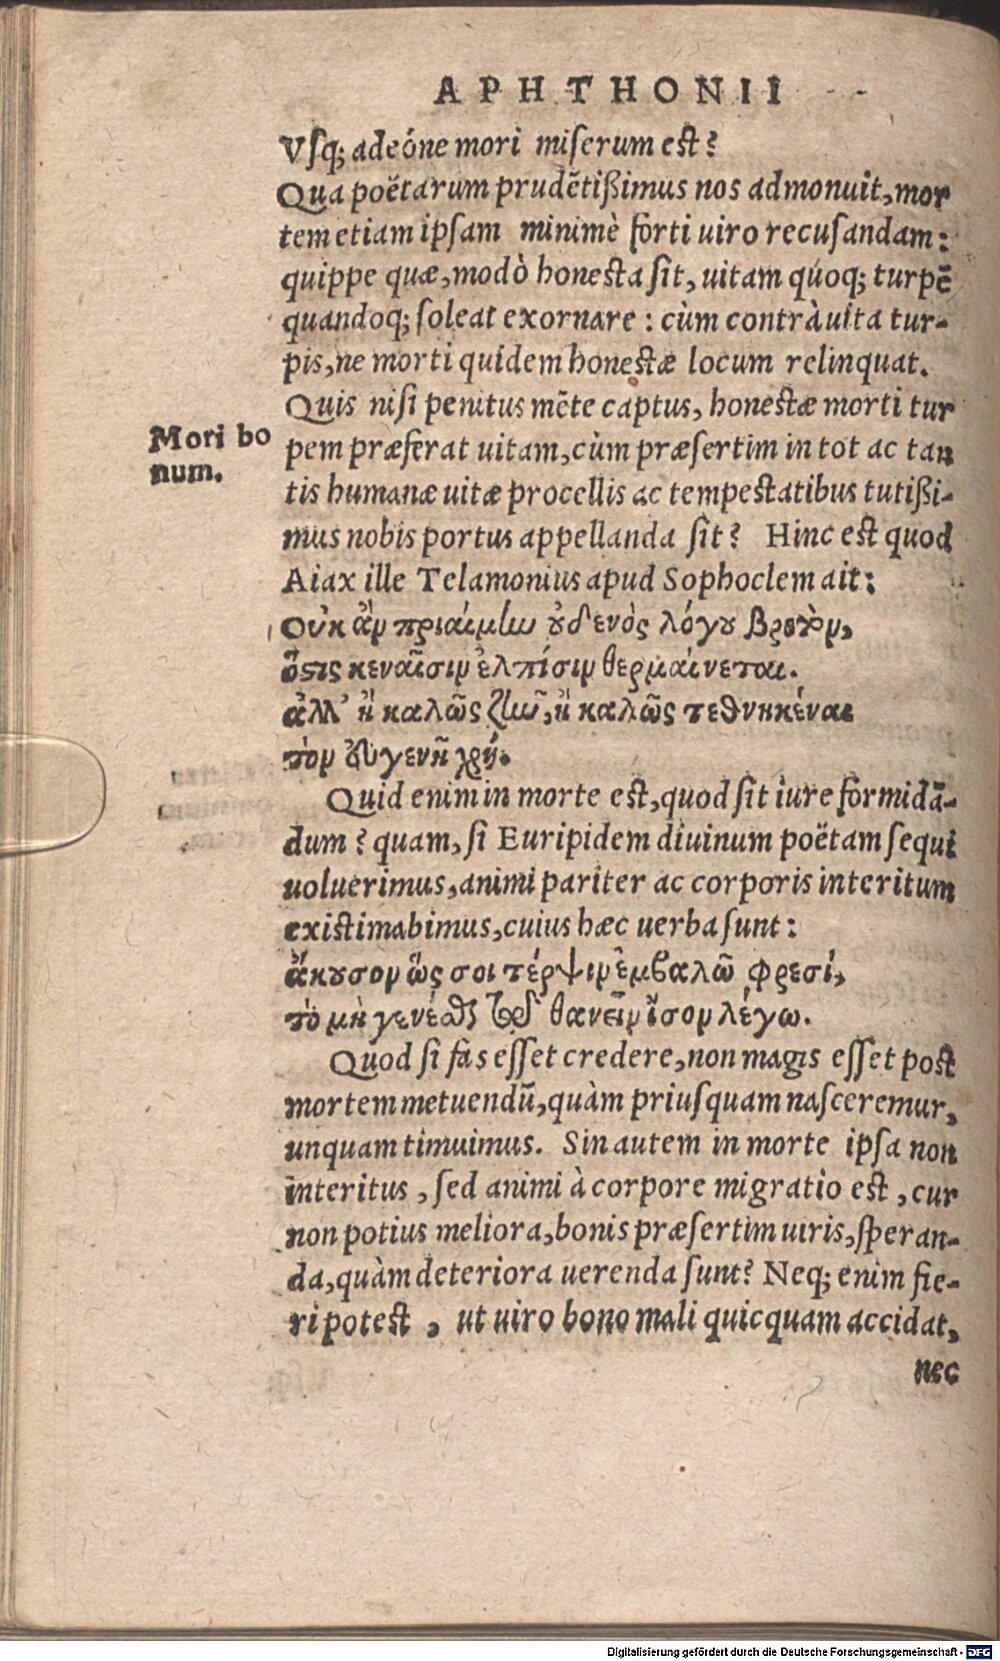 APHTHONII
Vſq; adeóne mori miſerum eſt?
Qua poëtarum prudẽtißimus nos admonuit, mor
tem etiam ipſam minimè forti uiro recuſandam:
quippe quæ, modò honesta ſit, uitam quoq; turpẽ
quandoq; ſoleat exornare: cùm contrà uita tur-
pis, ne morti quidem honestæ locum relinquat.
Quis niſi penitus mẽte captus, honestæ morti tur
Mori bo
num.
pem præferat uitam, cùm præſertim in tot ac tan
tis humanæ uitæ procellis ac tempestatibus tutißi-
mus nobis portus appellanda ſit? Hinc est quod
Aiax ille Telamonius apud Sophoclem ait:
Οὐκ ἂν πριαίμίω οὐδενὸς λόγου βροτὸν,
ὅστις κεναῖσιν ἐλπίσιν θερμαίνεται.
ἀλλ' ἢ καλῶς ζῆν, ἢ καλῶς τεθνηκέναι
τὸν εὐγενῆ χρή.
Quid enim in morte est, quod ſit iure formidã-
dum? quam, ſi Euripidem diuinum poëtam ſequi
uoluerimus, animi pariter ac corporis interitum
existimabimus, cuius hæc uerba ſunt:
ἄκουσον ὥς σοι τέρψιν ἐμβαλῶ φρεσί,
τὸ μὴ γενέσθαι τῷ δὲ θανεῖν ἴσον λέγω.
Quod ſi fas eſſet credere, non magis eſſet post
mortem metuendũ, quàm priuſquam naſceremur,
unquam timuimus. Sin autem in morte ipſa non
interitus, ſed animi à corpore migratio est, cur
non potius meliora, bonis præſertim uiris, ſperan-
da, quàm deteriora uerenda ſunt? Neq; enim fie-
ri potest, ut uiro bono mali quicquam accidat,
nec
Digitalisierung gefördert durch die Deutsche Forschungsgemeinschaft - DFG